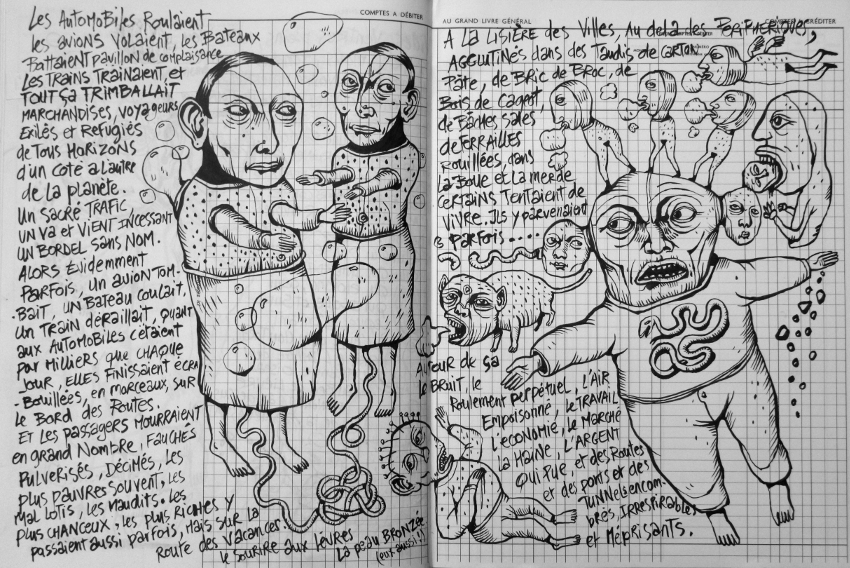 COMPTES A DÉBITER
Les AutoMoBiles Roulaient
les avions Volaient, les Bateaux
Battaient pavillon de complaisance
Les TRAINS TRAINAIENT, et
TOUT ça TRIMBALLAIT
MARCHANDISES, VOYAGEURS
Exilés et Refugiés
de Tous Horizons
d'un coté a l'autre
de la planète.
Un Sacré TRAFIC,
un va et vient incessant
UN BORDEL Sans NOM.
ALORS évidemment
PARFOIS, un avion TOM-
BAIT, un Bateau coulait,
un TRAIN déRaillait, quant
aux AutoMobiles c'étaient
par Milliers que chaque
Jour, elles finissaient écra
-Bouillées, en morceaux, sur
le Bord des Routes.
Et les passagers mouraient
en grand Nombre, Fauchés
Pulverisés, Décimés, les
plus pauvres souvent, les
Mal lotis, les Maudits. les
plus chanceux. les plus Riches y
passaient aussi parfois, Mais sur la
Route des Vacances.
le sourire aux lèvres
la peau BRONZée
(eux aussi!)
AU GRAND LIVRE GÉNÉRAL
COMPTES A CRÉDITER
A la lisière des Villes, au dela des PéRiphériques,
AGGLUTINÉS dans des Taudis de carton
Pâte, de BRic de BRoc, de
Bois de Cagot,
de Bâches sales
de FERRAILLES
Rouillées, dans
la Boue et la merde
CERTAINS TENTAIENT de
VIVRE. ILS y parvenaient
PARFOIS....
Autour de ça
le BRUIT, le
Roulement perpétuel, l'AIR
Empoisonné, le TRAVAIL
l'économie, le MARCHé
la Haine, l'ARGENT
qui pue, et des Routes
et des ponts et des
TUNNELS encom-
brés IRRespirables
et MépRisants.